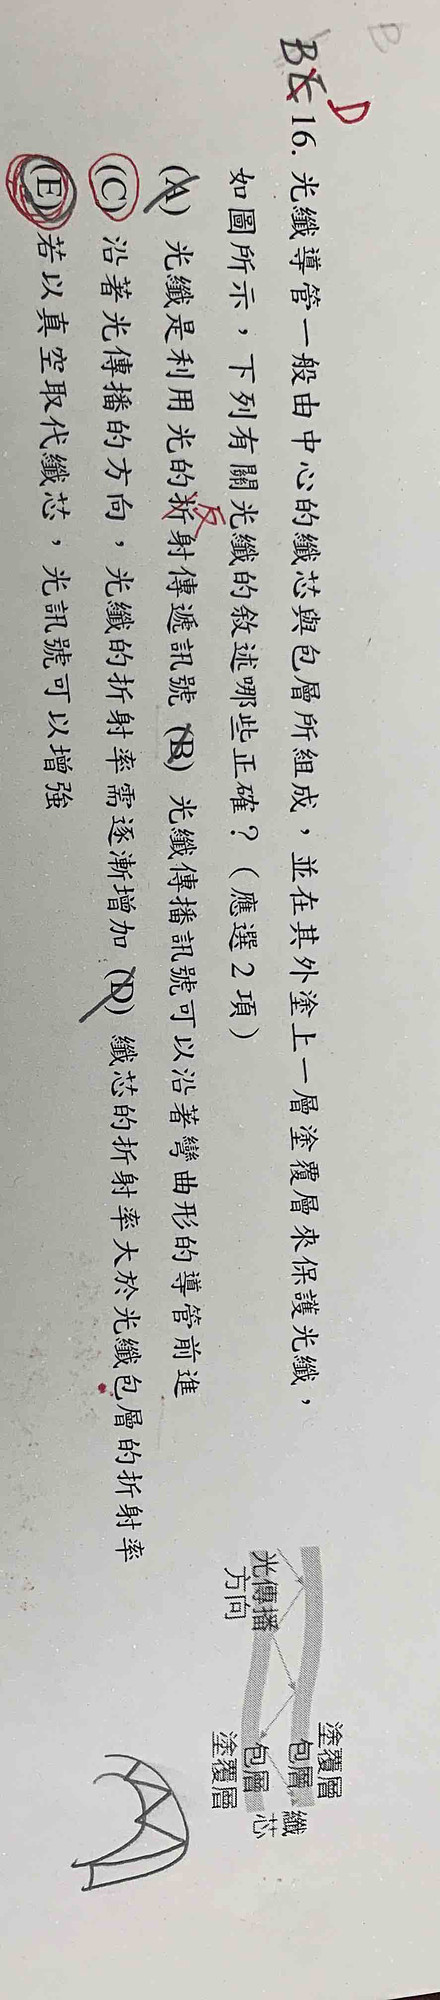 B
BE D 16. 光纖導管一般由中心的纖芯與包層所組成，並在其外塗上一層塗覆層來保護光纖，
如圖所示，下列有關光纖的敘述哪些正確？（應選2項）
(A) 光纖是利用光的折射傳遞訊號 (B) 光纖傳播訊號可以沿著彎曲形的導管前進
反
(C) 沿著光傳播的方向，光纖的折射率需逐漸增加 (D) 纖芯的折射率大於光纖包層的折射率
(E) 若以真空取代纖芯，光訊號可以增強
塗覆層
包層
纖芯
光傳播
方向
包層
塗覆層